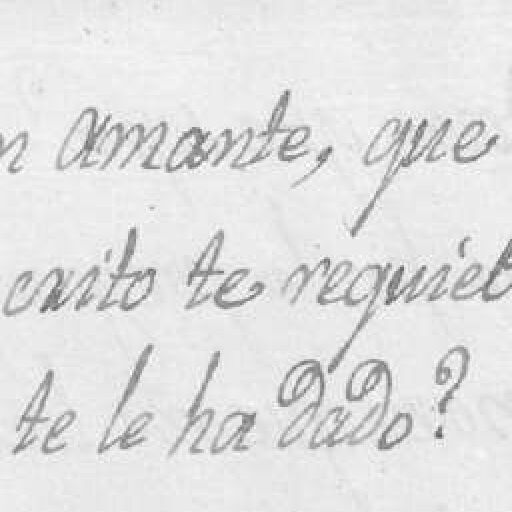 n amante, que
crito te requieb
te le ha dado?